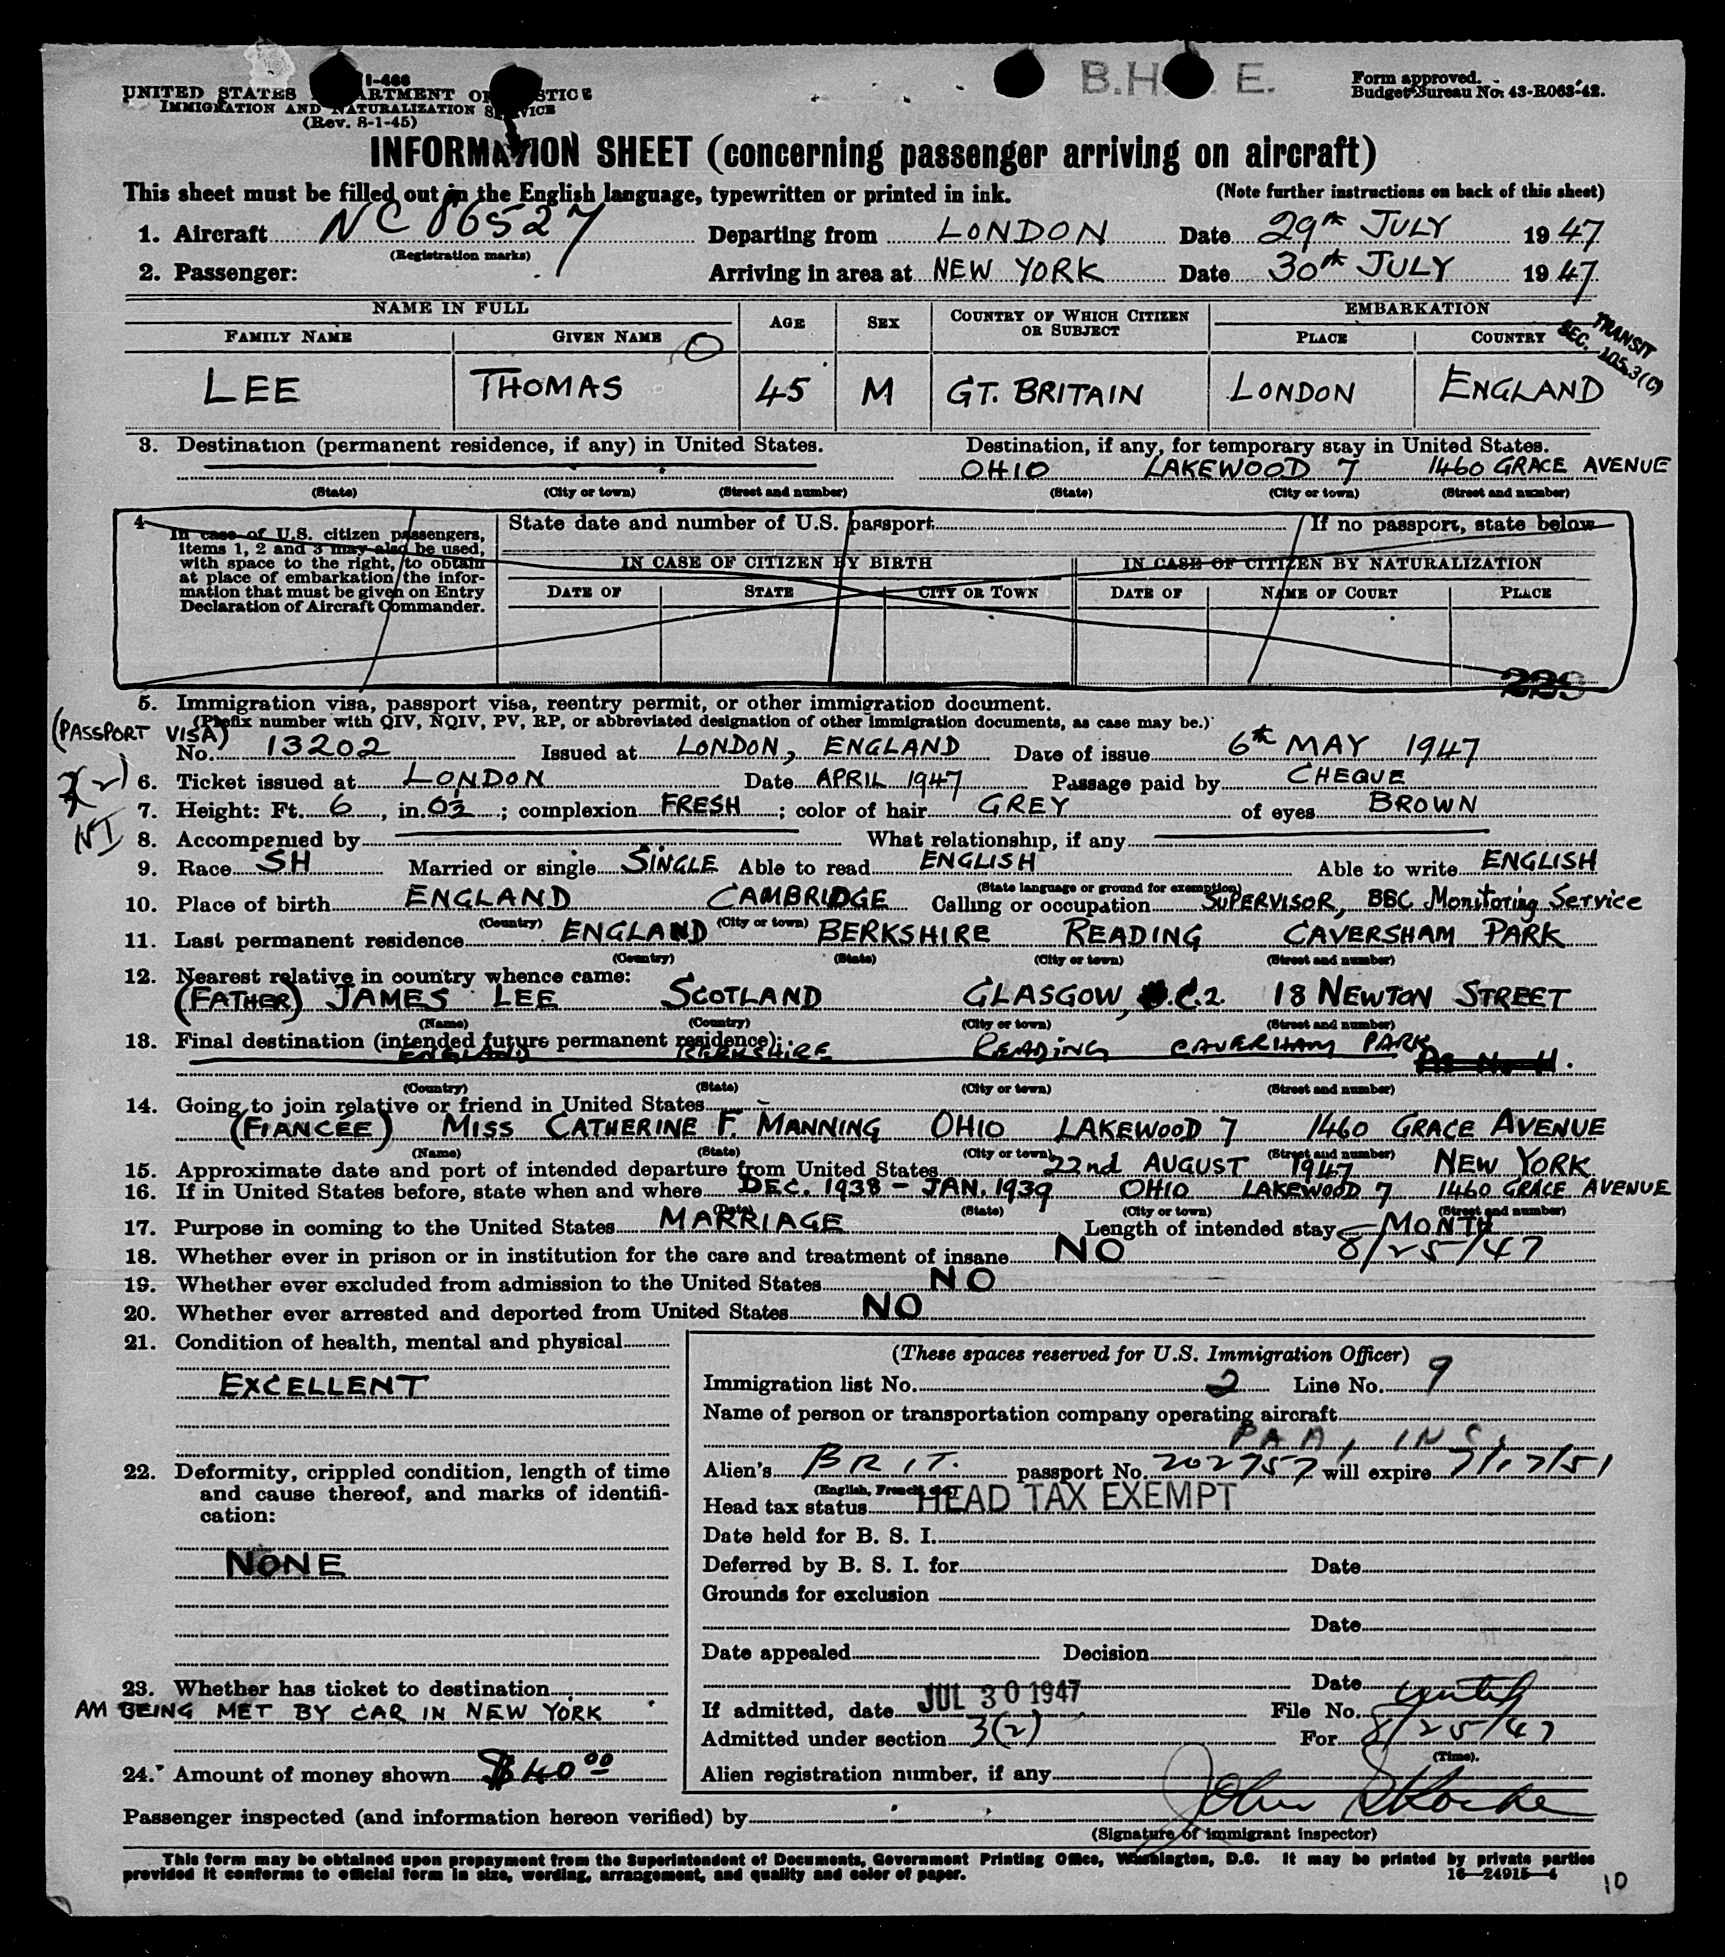 I-466
B.H. E.
Form approved.
Budget Bureau No. 43-R063-42.
UNITED STATES DEPARTMENT OF JUSTICE
IMMIGRATION AND NATURALIZATION SERVICE
(Rev. 8-1-45)
INFORMATION SHEET (concerning passenger arriving on aircraft)
This sheet must be filled out in the English language, typewritten or printed in ink. (Note further instructions on back of this sheet)
1. Aircraft NC 86527 Departing from LONDON Date 29th JULY 1947
(Registration marks)
2. Passenger: Arriving in area at NEW YORK Date 30th JULY 1947
NAME IN FULL AGE SEX COUNTRY OF WHICH CITIZEN OR SUBJECT EMBARKATION
FAMILY NAME GIVEN NAME PLACE COUNTRY
TRANSIT
SEC. 105.3(C)
LEE THOMAS 45 M GT. BRITAIN LONDON ENGLAND
3. Destination (permanent residence, if any) in United States. Destination, if any, for temporary stay in United States.
OHIO LAKEWOOD 7 1460 GRACE AVENUE
(State) (City or town) (Street and number) (State) (City or town) (Street and number)
4 In case of U.S. citizen passengers,
items 1, 2 and 3 may also be used,
with space to the right, to obtain
at place of embarkation the infor-
mation that must be given on Entry
Declaration of Aircraft Commander.
State date and number of U.S. passport If no passport, state below
IN CASE OF CITIZEN BY BIRTH IN CASE OF CITIZEN BY NATURALIZATION
DATE OF STATE CITY OR TOWN DATE OF NAME OF COURT PLACE
5. Immigration visa, passport visa, reentry permit, or other immigration document.
(Prefix number with QIV, NQIV, PV, RP, or abbreviated designation of other immigration documents, as case may be.)
(PASSPORT VISA)
No. 13202 Issued at LONDON, ENGLAND Date of issue 6th MAY 1947
3(2) 6. Ticket issued at LONDON Date APRIL 1947 Passage paid by CHEQUE
7. Height: Ft. 6, in. 0½; complexion FRESH; color of hair GREY of eyes BROWN
NI 8. Accompanied by What relationship, if any
9. Race SH Married or single SINGLE Able to read ENGLISH Able to write ENGLISH
(State language or ground for exemption)
10. Place of birth ENGLAND CAMBRIDGE Calling or occupation SUPERVISOR, BBC Monitoring Service
(Country) (City or town)
11. Last permanent residence ENGLAND BERKSHIRE READING CAVERSHAM PARK
(Country) (State) (City or town) (Street and number)
12. Nearest relative in country whence came:
(FATHER) JAMES LEE SCOTLAND GLASGOW, C.2. 18 NEWTON STREET
(Name) (Country) (City or town) (Street and number)
13. Final destination (intended future permanent residence):
ENGLAND BERKSHIRE READING CAVERSHAM PARK
(Country) (State) (City or town) (Street and number)
14. Going to join relative or friend in United States
(FIANCÉE) MISS CATHERINE F. MANNING OHIO LAKEWOOD 7 1460 GRACE AVENUE
(Name) (State) (City or town) (Street and number)
15. Approximate date and port of intended departure from United States 22nd AUGUST 1947 NEW YORK
16. If in United States before, state when and where DEC. 1938 – JAN. 1939 OHIO LAKEWOOD 7 1460 GRACE AVENUE
(Date) (State) (City or town) (Street and number)
17. Purpose in coming to the United States MARRIAGE Length of intended stay MONTH
8/25/47
18. Whether ever in prison or in institution for the care and treatment of insane NO
19. Whether ever excluded from admission to the United States NO
20. Whether ever arrested and deported from United States NO
21. Condition of health, mental and physical
EXCELLENT
22. Deformity, crippled condition, length of time
and cause thereof, and marks of identifi-
cation:
NONE
23. Whether has ticket to destination
AM BEING MET BY CAR IN NEW YORK
24. Amount of money shown $40.00
(These spaces reserved for U.S. Immigration Officer)
Immigration list No. 2 Line No. 9
Name of person or transportation company operating aircraft
PAA, INC.
Alien's BRIT. passport No. 202757 will expire 7/17/51
(English, French, etc.)
Head tax status HEAD TAX EXEMPT
Date held for B. S. I.
Deferred by B. S. I. for Date
Grounds for exclusion
Date
Date appealed Decision
Date
If admitted, date JUL 30 1947 File No.
Admitted under section 3(2) For 8/25/47
(Time).
Alien registration number, if any
Passenger inspected (and information hereon verified) by
(Signature of immigrant inspector)
This form may be obtained upon prepayment from the Superintendent of Documents, Government Printing Office, Washington, D.C. It may be printed by private parties
provided it conforms to official form in size, wording, arrangement, and quality and color of paper. 16—24915-4
10